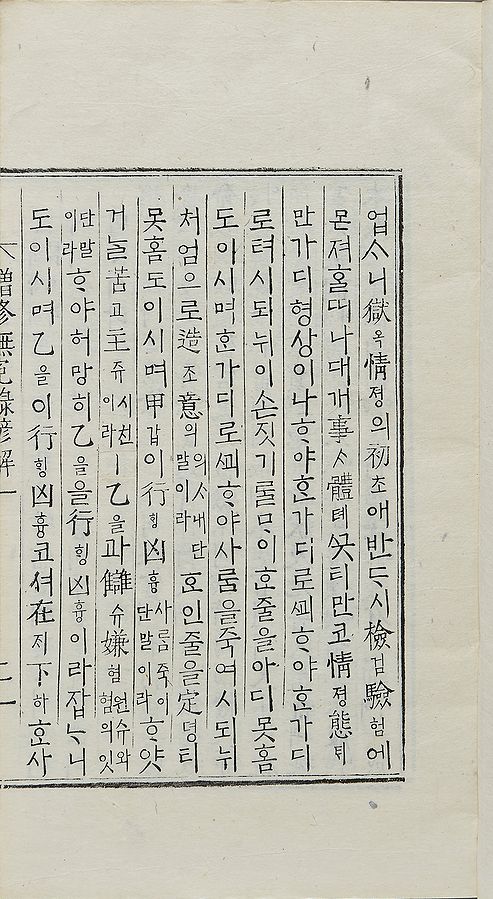 업ᄉᆞ니獄옥情졍의初초애반ᄃᆞ시檢검驗험에
몬져홀ᄯᅵ나대개事ᄉᆞ體톄ᄀᆞᆺ티만코情졍態ᄐᆡ
만가디형상이나ᄒᆞ야ᄒᆞᆫ가디로ᄢᅴᄒᆞ야ᄒᆞᆫ가디
로텨시되뉘이손짓기ᄅᆞᆯᄆᆡ이ᄒᆞᆫ줄을아디못홈
도이시며ᄒᆞᆫ가디로ᄢᅴᄒᆞ야사ᄅᆞᆷ을죽여시되뉘
처엄으로造조意의의ᄉᆞ내단말이라ᄒᆞᆫ인줄을定뎡티
못홈도이시며甲갑이行ᄒᆡᆼ凶흉사ᄅᆞᆷ죽이단말이라ᄒᆞ얏
거ᄂᆞᆯ苦고主쥬시친이라ㅣ乙을과讎슈嫌혐원슈와혐의잇
단말이라ᄒᆞ야허망히乙을을行ᄒᆡᆼ凶흉이라잡ᄂᆞ니
도이시며乙을이行ᄒᆡᆼ凶흉코셔在ᄌᆡ下하ᄒᆞᆫ사
增修無冤錄諺解一